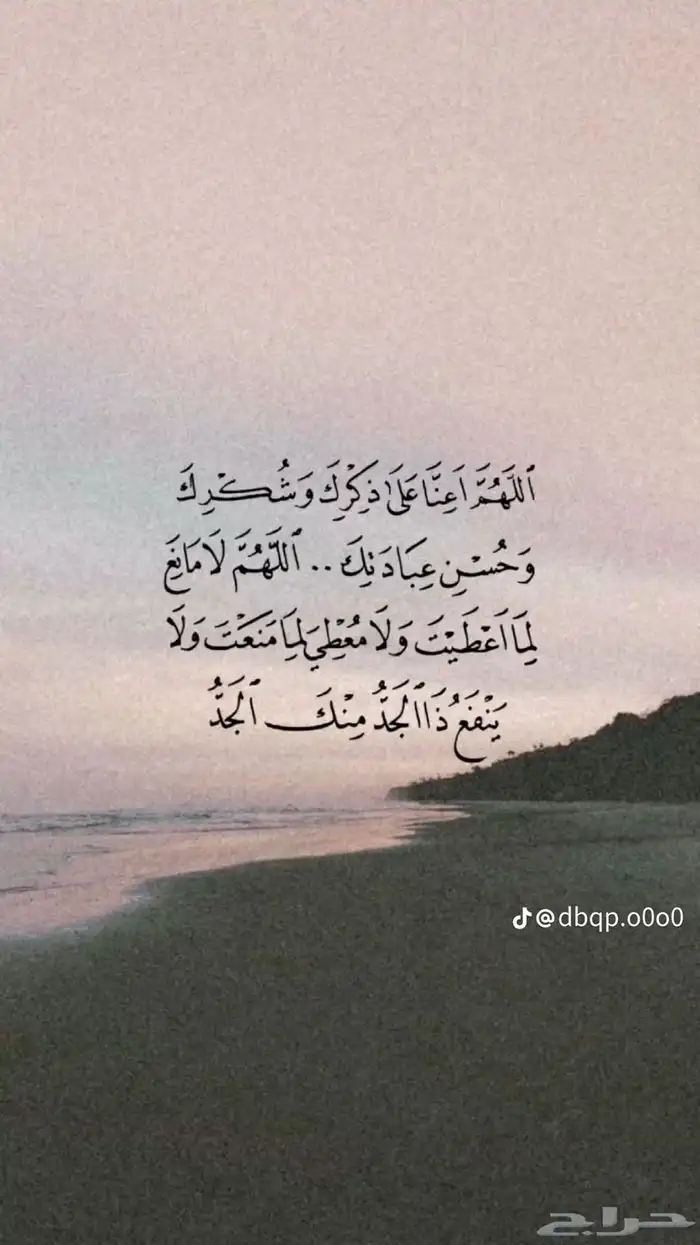 ٱللَّهُمَّ اَعِنَّا عَلَىٰ ذِكْرِكَ وَشُكْرِكَ
وَحُسْنِ عِبَادَتِكَ .. ٱللَّهُمَّ لَا مَانِعَ
لِمَا اَعْطَيْتَ وَلَا مُعْطِيَ لِمَا مَنَعْتَ وَلَا
يَنْفَعُ ذَا الْجَدُّ مِنْكَ ٱلْجَدُّ
@dbqp.o0o0
حراج